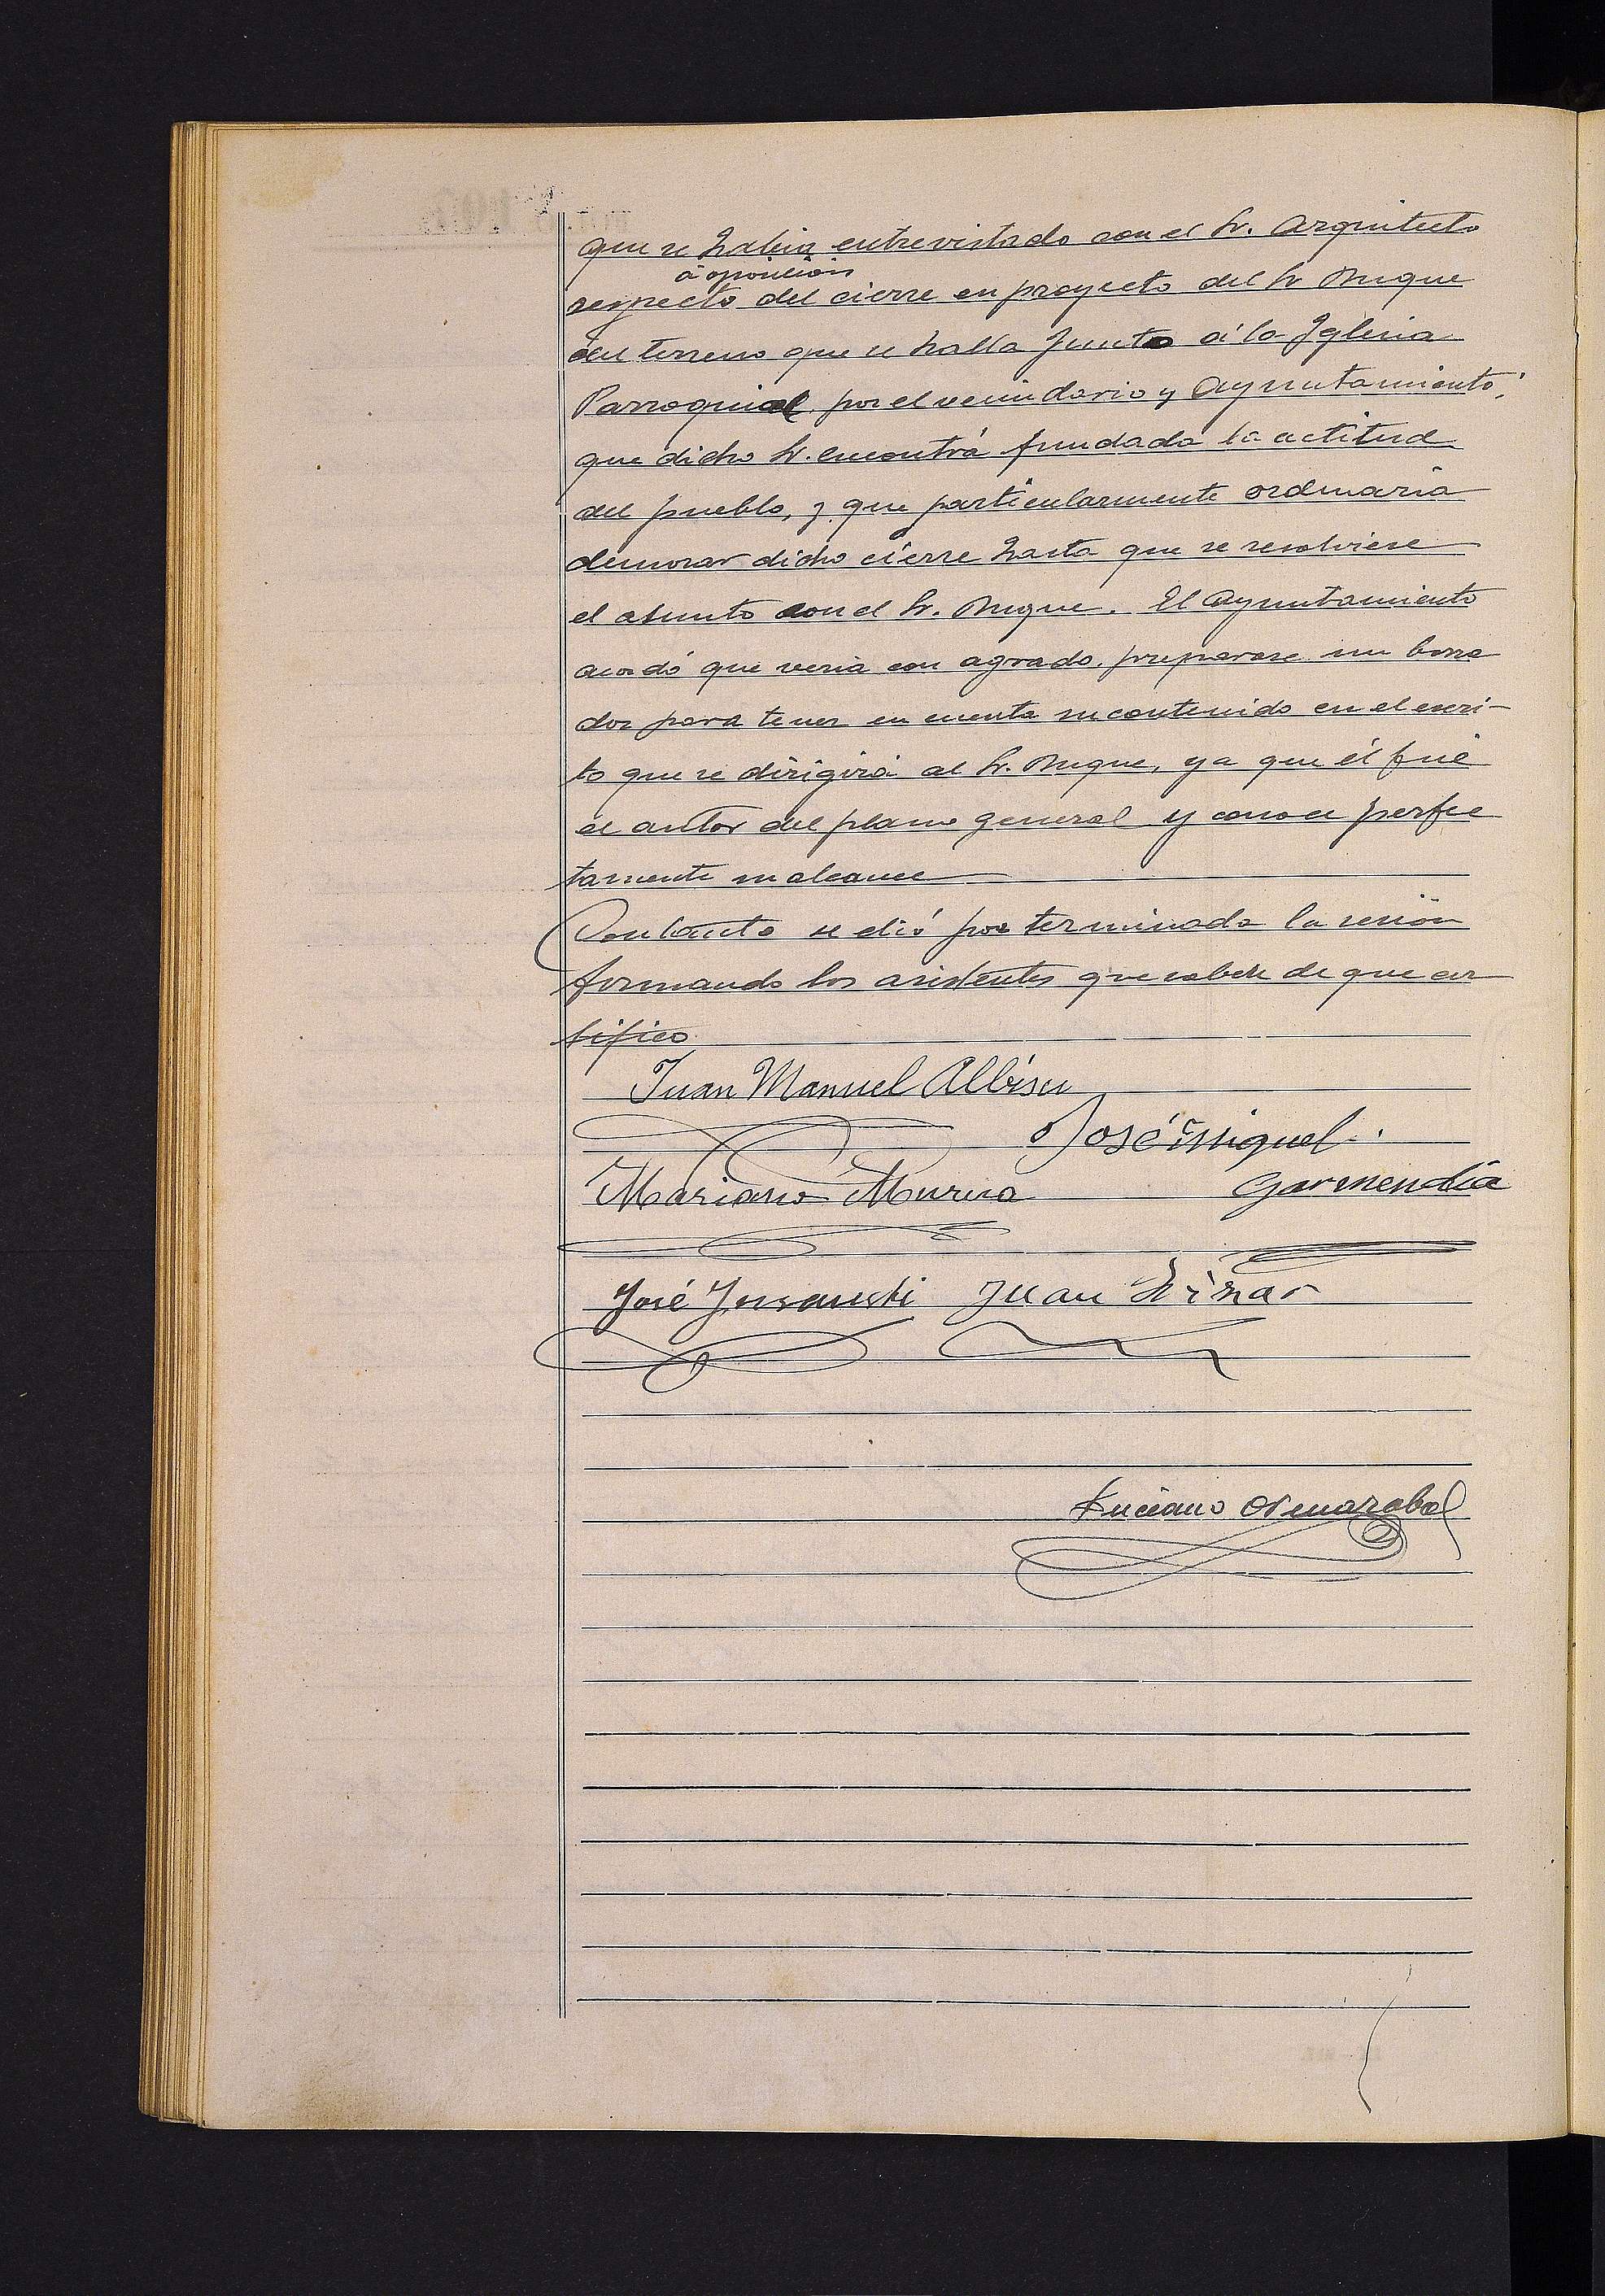 que se habia entrevistado con el Sr. Arquitecto
á oposición
respecto del cierre en proyecto del Sr Duque
del terreno que se halla junto á la Iglesia
Parroquial, por el vecindario y Ayuntamiento;
que dicho Sr. encontrá fundada la actitud
del pueblo, y que particularmente ordenaria
demorar dicho cierre hasta que se resolviese
el asunto con el Sr. Duque. El Ayuntamiento
acordó que veria con agrado preparase un borra
dor para tener en cuenta su contenido en el escri-
to que se dirigirá al Sr. Duque, ya que él fué
el autor del plano general y conoce perfec
tamente su alcance
Con tanto se dió por terminada la sesión
firmando los asistentes que saben de que cer
tifico
Juan Manuel Albisu
José Miguel
Mariano Murua Garmendia
José Juan
Luciano